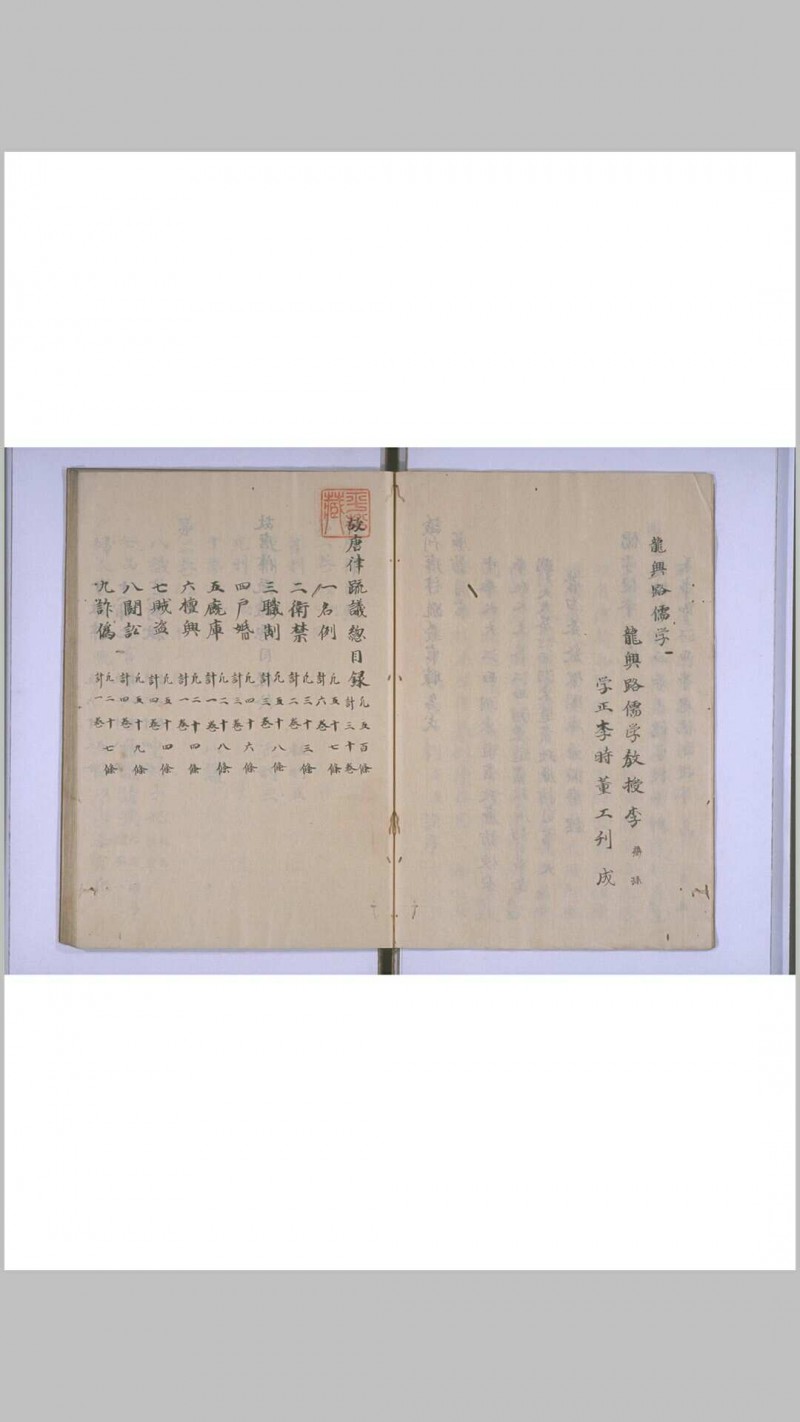 龍興路儒学
龍興路儒学教授李
学正李時董工刋成
故唐律疏議惣目録 凢五百條 計三十卷
一名例 凢五十七條 計六卷
二衛禁 凢三十三條 計二卷
三職制 凢五十八條 計三卷
四戸婚 凢四十六條 計三卷
五廐庫 凢二十八條 計一卷
六擅興 凢二十四條 計一卷
七賊盗 凢五十四條 計四卷
八闘訟 凢五十九條 計四卷
九詐偽 凢二十七條 計一卷